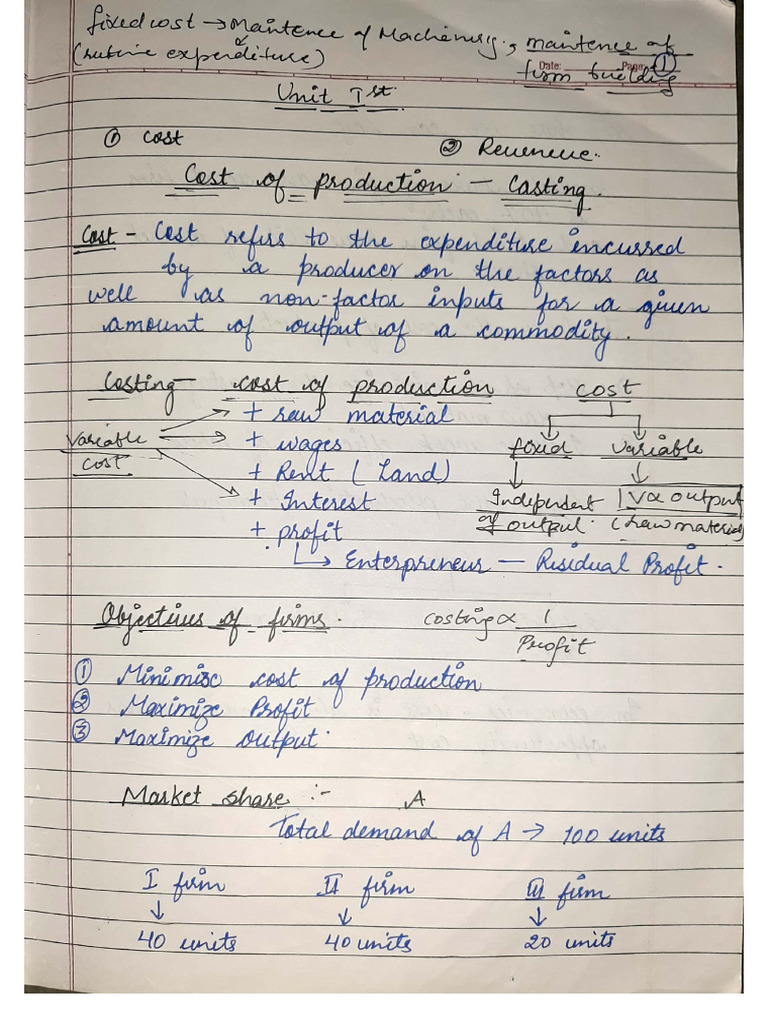 fixed cost → Maintence of Machinery, maintence of
(rutine expenditure) firm building
Date: Page: 1
Unit Ist
① cost ② Reveneue.
Cost of production – Casting.
Cost - Cost refers to the expenditure incurred
by a producer on the factors as
well as non-factor inputs for a given
amount of output of a commodity.
Costing – cost of production cost
+ raw material
variable + wages fixed variable
cost + Rent (Land)
+ Interest Independent V α output
+ profit of output. (raw material)
↳ Enterpreneur – Residual Profit.
Objectives of firms. costing ∝ 1
Profit
① Minimise cost of production
② Maximize Profit
③ Maximize output.
Market share :- A
Total demand of A → 100 units
I firm II firm III firm
↓ ↓ ↓
40 units 40 units 20 units